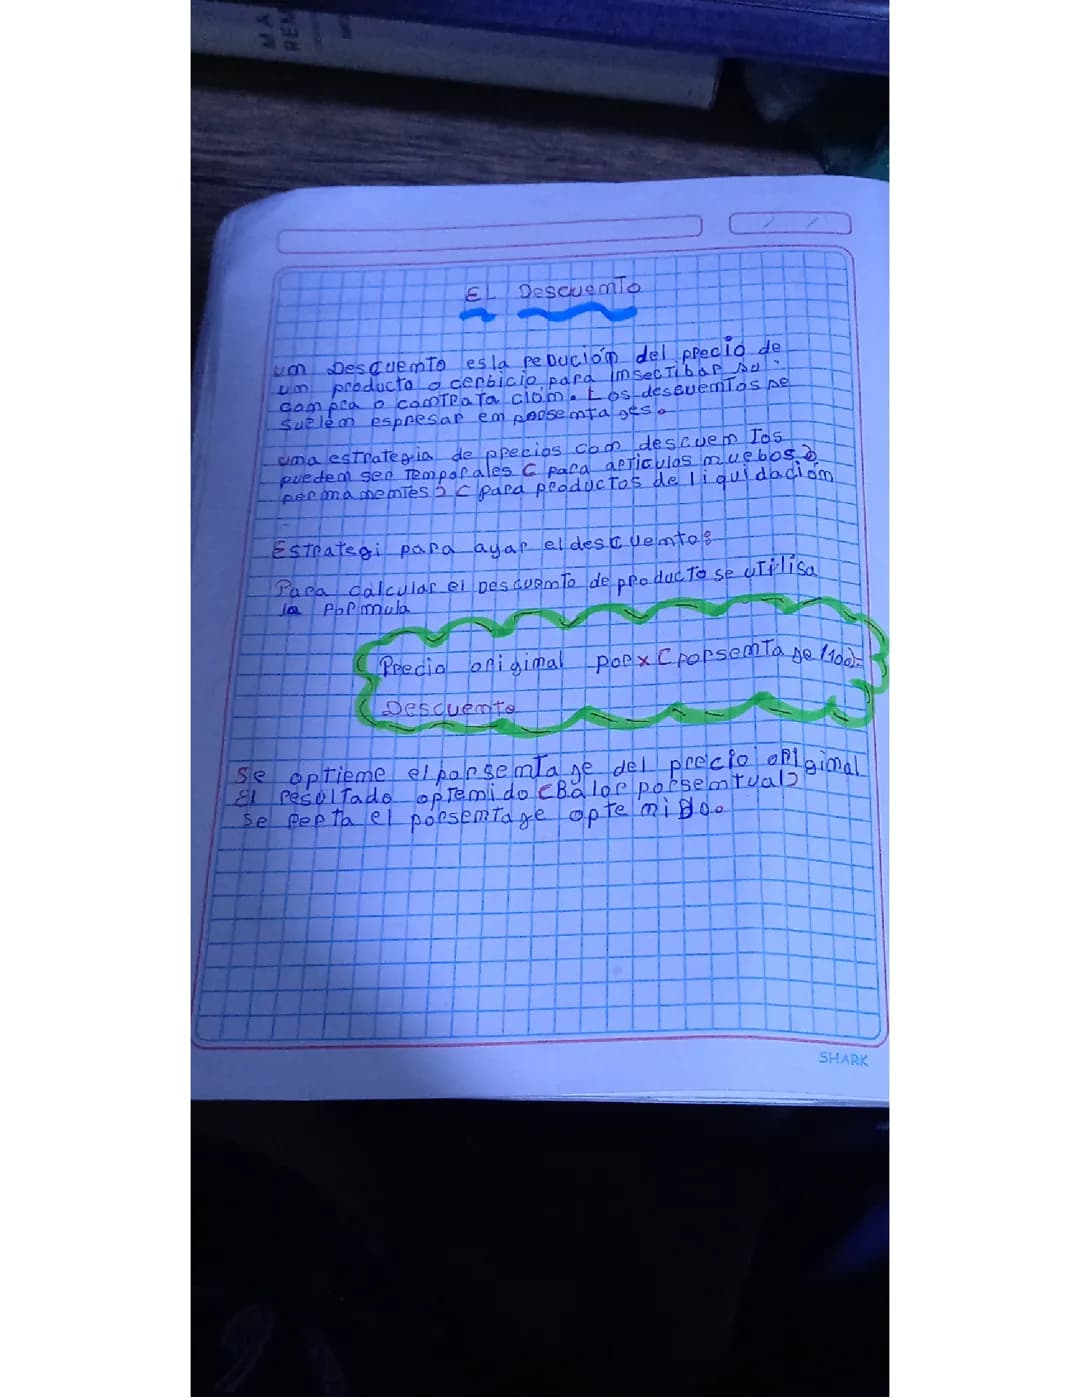 MA
REM
EL Descuemto
um Descuemto es la reducióm del precio de
um producto o cerbicio, para imsectibar su
compra o comtrata ciom. Los descuemtos se
suelem espresar em porsemta ges.
uma estrategia de precios com descuem tos
puedem ser temporales C para articulos muebos Ɔ
permamemtes Ɔ C para productos de liquidacióm
Estrategi para ayar el descuemto:
Para calcular el Descuemto de producto se utilisa
la formula
Precio origimal por x C porsemta ge /100)=
Descuemto
se optieme el porsemta ge del precio origimal
El resultado optemido C Balor porsemtual Ɔ
se repta el porsemtage opte mido.
SHARK